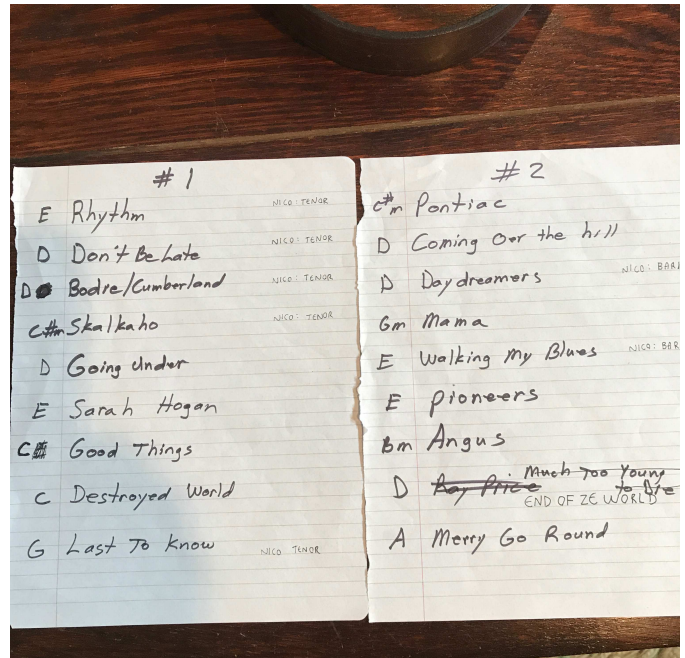 # 1
E Rhythm NICO: TENOR
D Don't Be Late NICO: TENOR
D Bodie/Cumberland NICO: TENOR
C#m Skalkaho NICO: TENOR
D Going Under
E Sarah Hogan
C Good Things
C Destroyed World
G Last To Know NICO TENOR
# 2
C#m Pontiac
D Coming Over the hill
D Daydreamers NICO: BARI
Gm Mama
E Walking My Blues NICO: BAR
E Pioneers
Bm Angus
D Ray Price Much Too Young
to Die
END OF ZE WORLD
A Merry Go Round